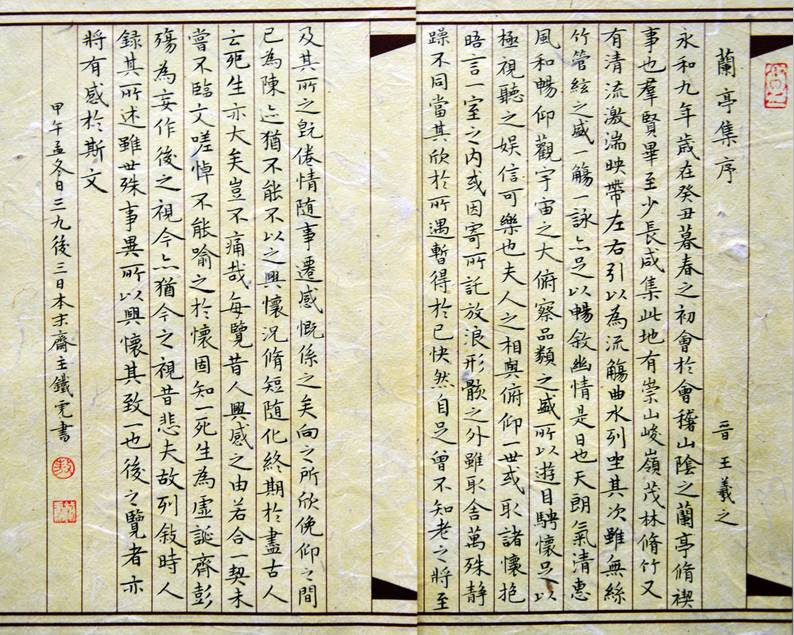 蘭亭集序 晉 王羲之
永和九年歲在癸丑暮春之初會於會稽山陰之蘭亭脩禊
事也羣賢畢至少長咸集此地有崇山峻嶺茂林脩竹又
有清流激湍映帶左右引以為流觴曲水列坐其次雖無絲
竹管絃之盛一觴一詠亦足以暢敘幽情是日也天朗氣清惠
風和暢仰觀宇宙之大俯察品類之盛所以遊目騁懷足以
極視聽之娛信可樂也夫人之相與俯仰一世或取諸懷抱
晤言一室之內或因寄所託放浪形骸之外雖取舍萬殊静
躁不同當其欣於所遇暫得於己快然自足曾不知老之將至
及其所之既倦情隨事遷感慨係之矣向之所欣俛仰之間
已為陳迹猶不能不以之興懷況脩短隨化終期於盡古人
云死生亦大矣豈不痛哉每覽昔人興感之由若合一契未
嘗不臨文嗟悼不能喻之於懷固知一死生為虛誕齊彭
殤為妄作後之視今亦猶今之視昔悲夫故列敘時人
録其所述雖世殊事異所以興懷其致一也後之覽者亦
將有感於斯文
甲午孟冬日三九後三日本末齋主鐵書